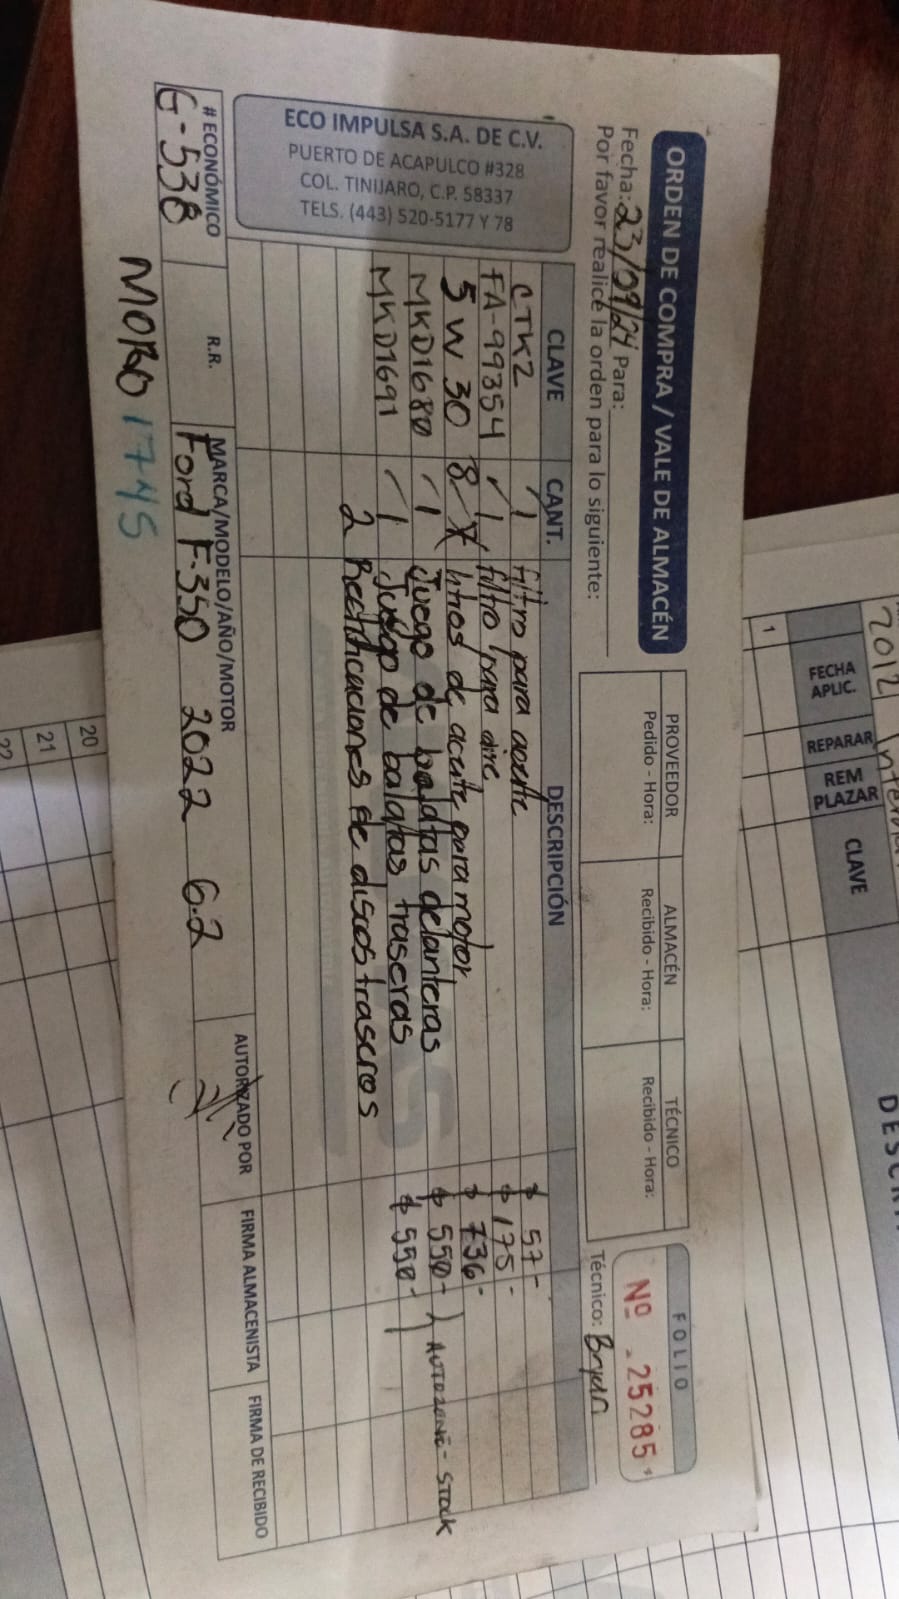 ORDEN DE COMPRA / VALE DE ALMACÉN
Fecha: 23/09/24 Para:
Por favor realice la orden para lo siguiente:
PROVEEDOR
Pedido - Hora:
ALMACÉN
Recibido - Hora:
TÉCNICO
Recibido - Hora:
FOLIO
Nº 25285
Técnico: Bryan
ECO IMPULSA S.A. DE C.V.
PUERTO DE ACAPULCO #328
COL. TINIJARO, C.P. 58337
TELS. (443) 520-5177 Y 78
CLAVE CANT. DESCRIPCIÓN
CTK2 1 filtro para aceite $ 57-
FA-99354 1 filtro para aire $ 175-
5W30 8 litros de aceite para motor $ 736-
MKD1680 1 Juego de balatas delanteras $ 550-
MKD1691 1 Juego de balatas traseras $ 550-
AUTOZONE - STOCK
2 Rectificaciones de discos traseros
# ECONÓMICO R.R. MARCA/MODELO/AÑO/MOTOR AUTORIZADO POR FIRMA ALMACENISTA FIRMA DE RECIBIDO
G-538 Ford F-350 2022 6.2
MORO 1745
2012
1
FECHA APLIC.
REPARAR
REM PLAZAR
CLAVE
20
21
22